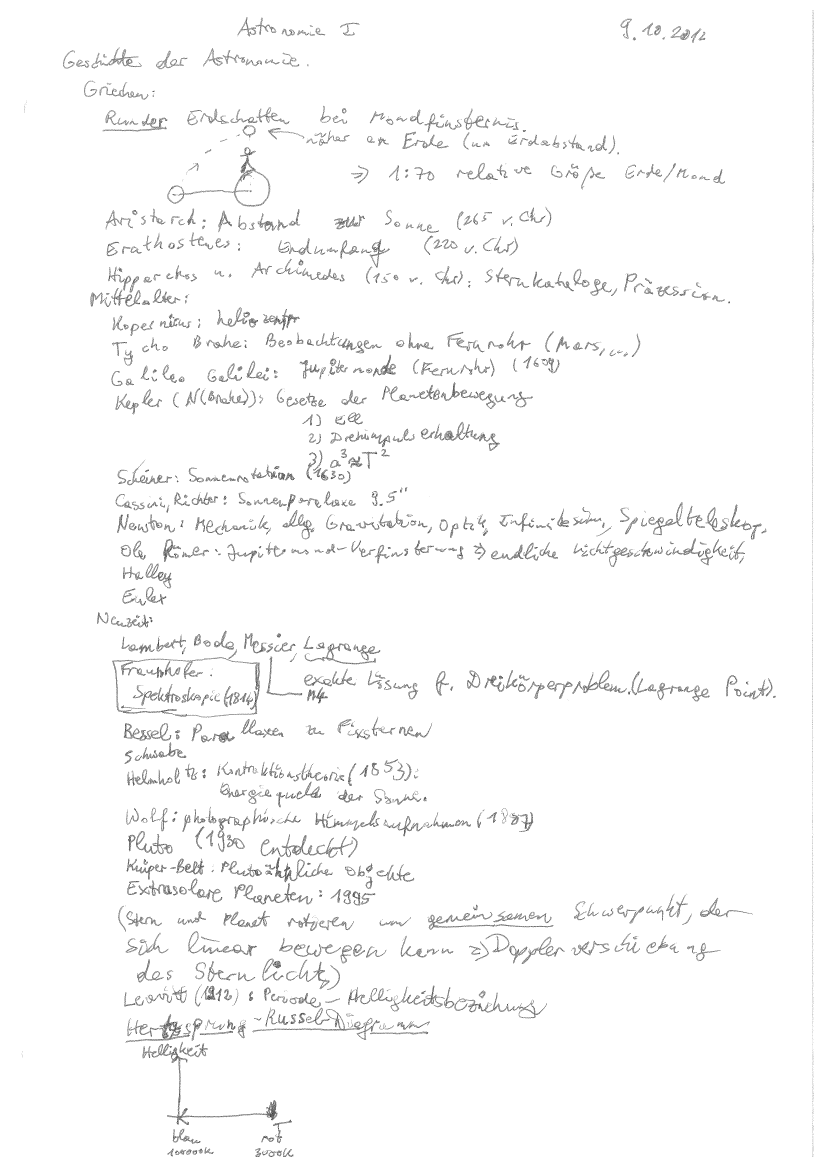 Astronomie I 9.10.2012
Geschichte der Astronomie.
Griechen:
Runder Erdschatten bei Mondfinsternis.
näher an Erde (um Erdabstand).
⇒ 1:70 relative Größe Erde/Mond
Aristarch: Abstand zur Sonne (265 v. Chr)
Erathostenes: Erdumfang (220 v. Chr)
Hipparchos u. Archimedes (150 v. Chr): Sternkataloge, Präzession.
Mittelalter:
Kopernicus: heliozentr
Tycho Brahe: Beobachtungen ohne Fernrohr (Mars, ...)
Galileo Galilei: Jupitermonde (Fernrohr) (1609)
Kepler (N(Brahe)): Gesetze der Planetenbewegung
1) Ell
2) Drehimpulserhaltung
3) a³ ≈ T²
Scheiner: Sonnenrotation (1630)
Cassini, Richter: Sonnenparalaxe 9.5"
Newton: Mechanik, allg. Gravitation, Optik, Infinitesim, Spiegelteleskop.
Ole Römer: Jupitermond-Verfinsterung ⇒ endliche Lichtgeschwindigkeit,
Halley
Euler
Neuzeit:
Lambert, Bode, Messier, Lagrange
Fraunhofer:
exakte Lösung f. Dreikörperproblem. (Lagrange Point).
Spektroskopie (1814)
Bessel: Parallaxen zu Fixsternen
Schwabe
Helmholtz: Kontraktionstheorie (1853):
Energiequelle der Sonne.
Wolf: photographische Himmelsaufnahmen (1887)
Pluto (1930 entdeckt)
Kuiper-Belt: Plutoähnliche Objekte
Extrasolare Planeten: 1995
(Stern und Planet rotieren um gemeinsamen Schwerpunkt, der
sich linear bewegen kann ⇒ Dopplerverschiebung
des Sternlichts)
Leavitt (1912): Periode-Helligkeitsbeziehung
Hertzsprung-Russel-Diagramm
Helligkeit
T
blau rot
10000K 3000K